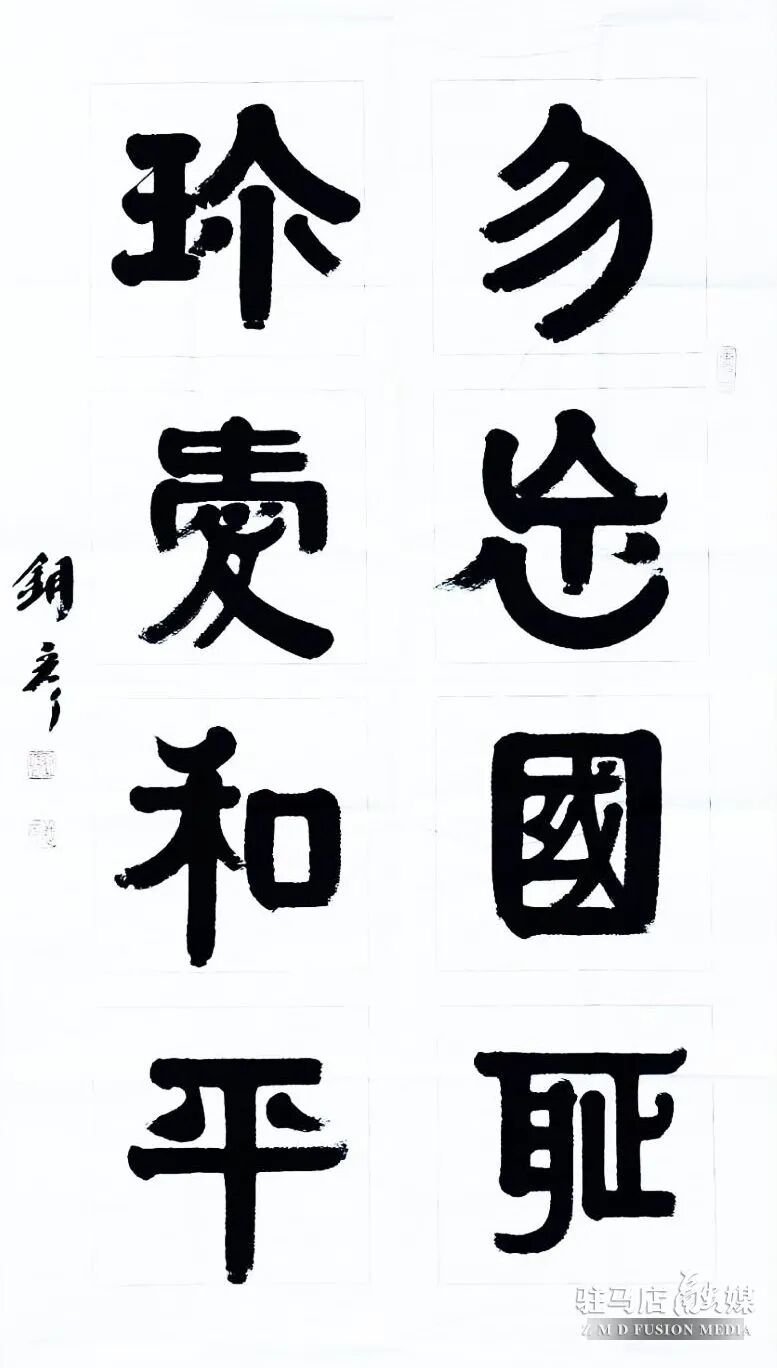 勿忘國耻
珎愛和平
驻马店融媒
Z M D FUSION MEDIA